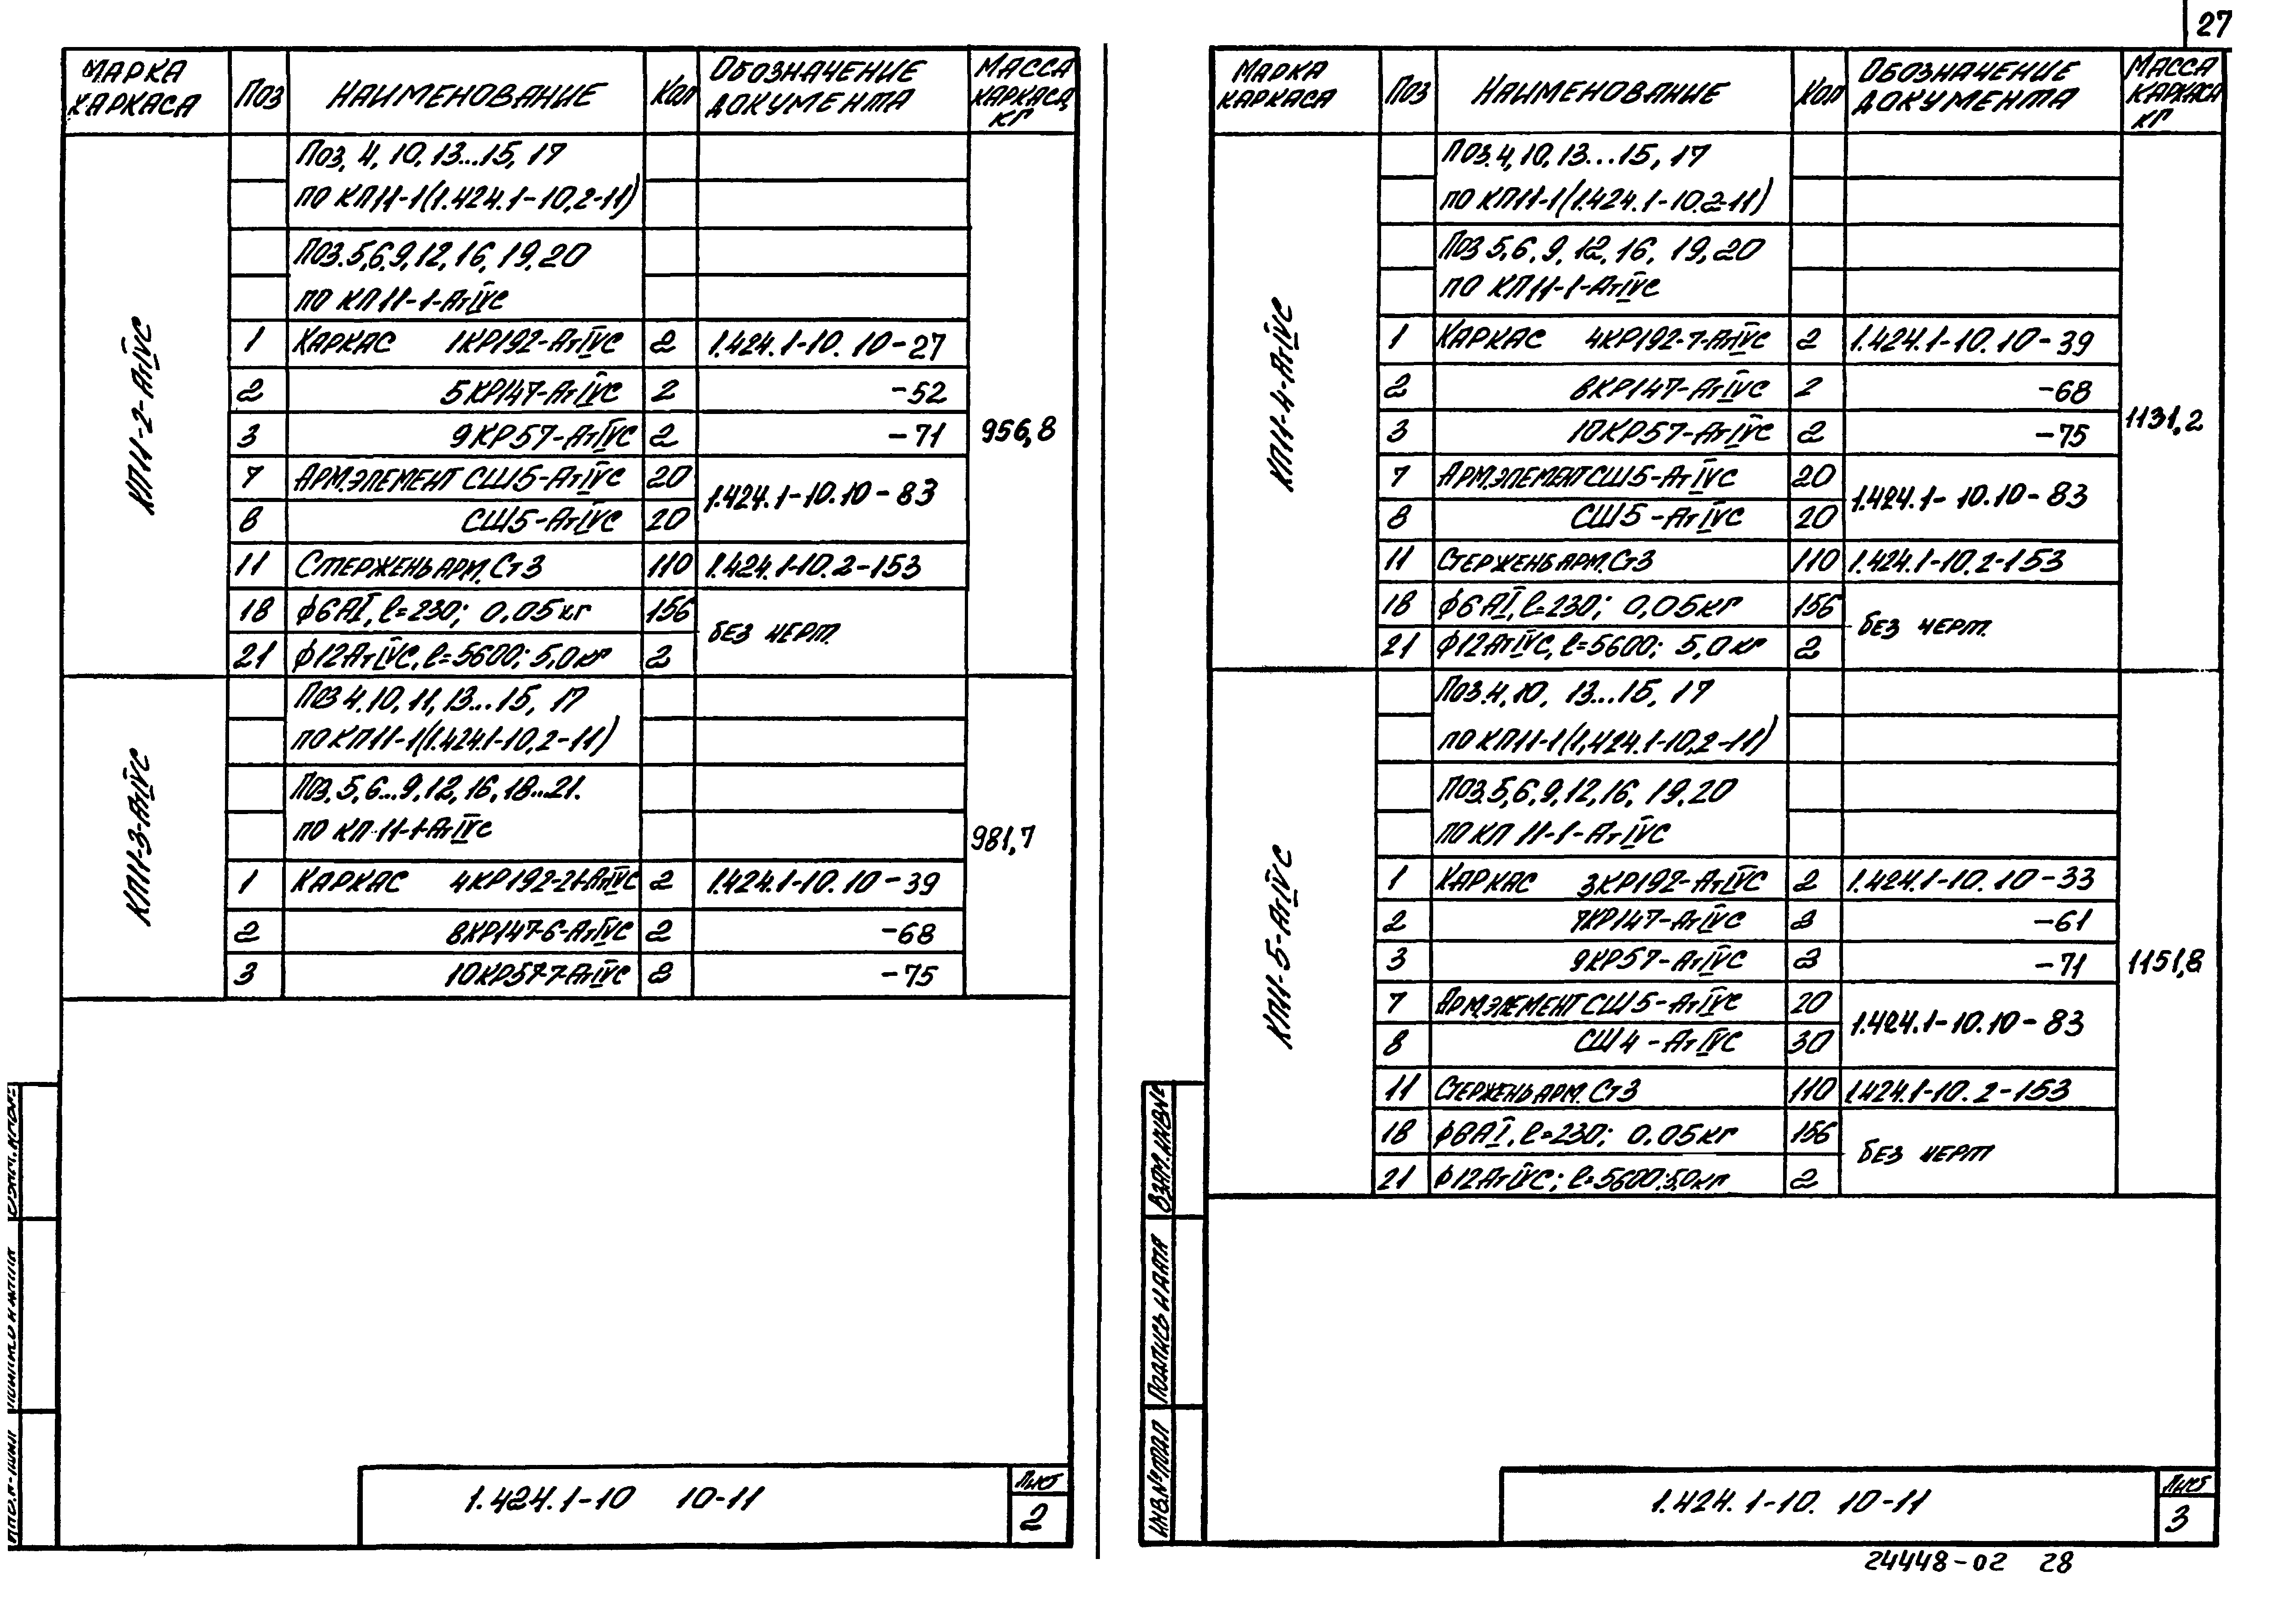 27
МАРКА КАРКАСА Поз НАИМЕНОВАНИЕ Кол ОБОЗНАЧЕНИЕ ДОКУМЕНТА МАССА КАРКАСА, КГ
КП11-2-АтIVС
Поз. 4, 10, 13...15, 17
по КП11-1(1.424.1-10,2-11)
Поз.5,6,9,12,16,19,20
по КП11-1-АтIVС
1 КАРКАС 1КР192-АтIVС 2 1.424.1-10.10-27
2 5КР147-АтIVС 2 -52
3 9КР57-АтIVС 2 -71
956,8
7 АРМ.ЭЛЕМЕНТ СШ5-АтIVС 20 1.424.1-10.10-83
8 СШ5-АтIVС 20
11 СТЕРЖЕНЬ АРМ. Ст3 110 1.424.1-10.2-153
18 ф6АI, l=230; 0,05кг 156 БЕЗ ЧЕРТ.
21 ф12АтIVС, l=5600; 5,0кг 2
КП11-3-АтIVС
Поз 4,10,11,13...15, 17
по КП11-1(1.424.1-10,2-11)
Поз, 5,6...9,12,16,18...21.
по КП 11-1-АтIVС
981,7
1 КАРКАС 4КР192-21-АтIVС 2 1.424.1-10.10-39
2 8КР147-6-АтIVС 2 -68
3 10КР57-7-АтIVС 2 -75
1.424.1-10 10-11
Лист
2
МАРКА КАРКАСА Поз НАИМЕНОВАНИЕ Кол ОБОЗНАЧЕНИЕ ДОКУМЕНТА МАССА КАРКАСА КГ
КП11-4-АтIVС
Поз.4,10,13...15,17
по КП11-1(1.424.1-10.2-11)
Поз 5,6,9,12,16, 19,20
по КП11-1-АтIVС
1 КАРКАС 4КР192-7-АтIVС 2 1.424.1-10.10-39
2 8КР147-АтIVС 2 -68
3 10КР57-АтIVС 2 -75
1131,2
7 АРМ.ЭЛЕМЕНТ СШ5-АтIVС 20 1.424.1-10.10-83
8 СШ5-АтIVС 20
11 СТЕРЖЕНЬ АРМ. Ст3 110 1.424.1-10.2-153
18 ф6АI, l=230; 0,05кг 156 БЕЗ ЧЕРТ.
21 ф12АтIVС, l=5600; 5,0кг 2
КП11-5-АтIVС
Поз.4,10, 13...15, 17
по КП11-1(1,424.1-10,2-11)
Поз.5,6,9,12,16, 19,20
по КП 11-1-АтIVС
1 КАРКАС 3КР192-АтIVС 2 1.424.1-10.10-33
2 7КР147-АтIVС 2 -61
3 9КР57-АтIVС 2 -71
1151,8
7 АРМ.ЭЛЕМЕНТ СШ5-АтIVС 20 1.424.1-10.10-83
8 СШ4-АтIVС 30
11 СТЕРЖЕНЬ АРМ. Ст3 110 1.424.1-10.2-153
18 ф6АI, l=230; 0,05кг 156 БЕЗ ЧЕРТ
21 ф12АтIVС; l=5600:5,0кг 2
ВЗАМ.ИНВ.№
ПОДПИСЬ И ДАТА
ИНВ.№ ПОДЛ
1.424.1-10. 10-11
Лист
3
24448-02 28